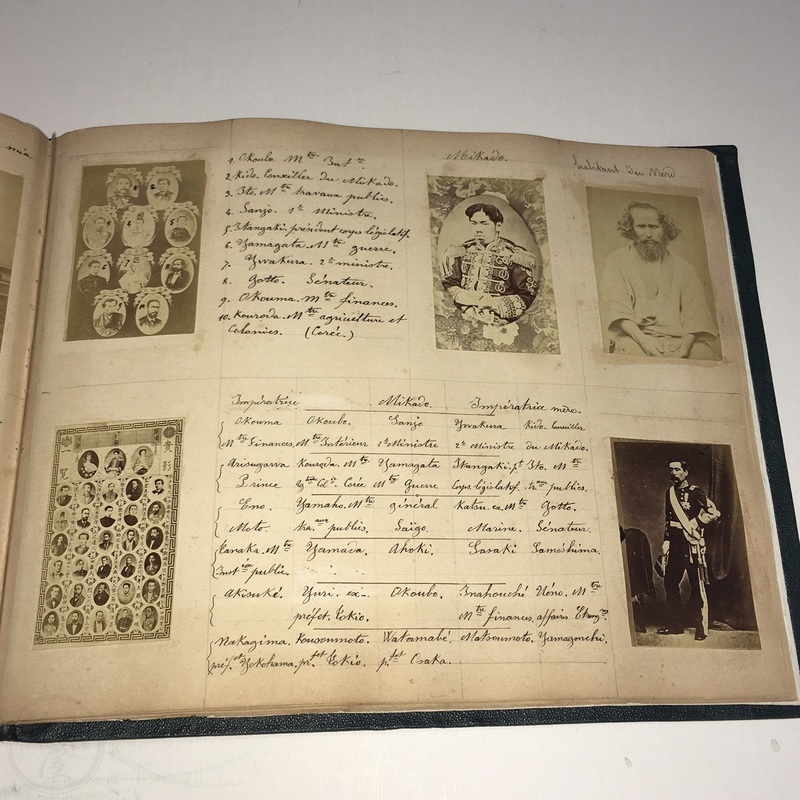 mia
1. Okoubo. Mtre Intre
2. Kido. Conseiller du Mikado.
3. Ito. Mtre travaux publics.
4. Sanjo. 1er Ministre.
5. Itangaki. président corps législatif.
6. Yamagata. Mtre guerre.
7. Ywakura. 2e ministre.
8. Gotto. Sénateur.
9. Okouma. Mtre finances.
10. Kouroda. Mtre agriculture et
Colonies. (Corée.)
Mikado.
habitant du Nord
Impératrice Mikado. Impératrice mère.
Okouma Okoubo. Sanjo Ywakura Kido. Conseiller
Mtre Finances. Mtre Intérieur 1er Ministre 2e Ministre du Mikado.
Arisugavva Kouroda. Mtre Yamagata Itangaki. pt Ito. Mtre
Prince Corée Mtre Guerre Corps législatif. traux publics.
Eno. Yamaho. Mtre général Katsu. ex. Mtre Gotto.
Moto. traaux publics. Saïgo. Marine. Sénateur.
Tanaka. Mtre Yamada. Ahoki. Sasaki Saméshima.
Instion public.
Akisuké. Yuri. ex- Okoubo. Inahouché Uéno. Mtre
préfet. Tokio. Mtre finances. affaires. Etrangres
Nakagima. Kousoumoto. Watamabé. Matsoumoto. Yamagouchi.
préfet Yokohama. préfet Tokio. préfet Osaka.
貴影
一覧